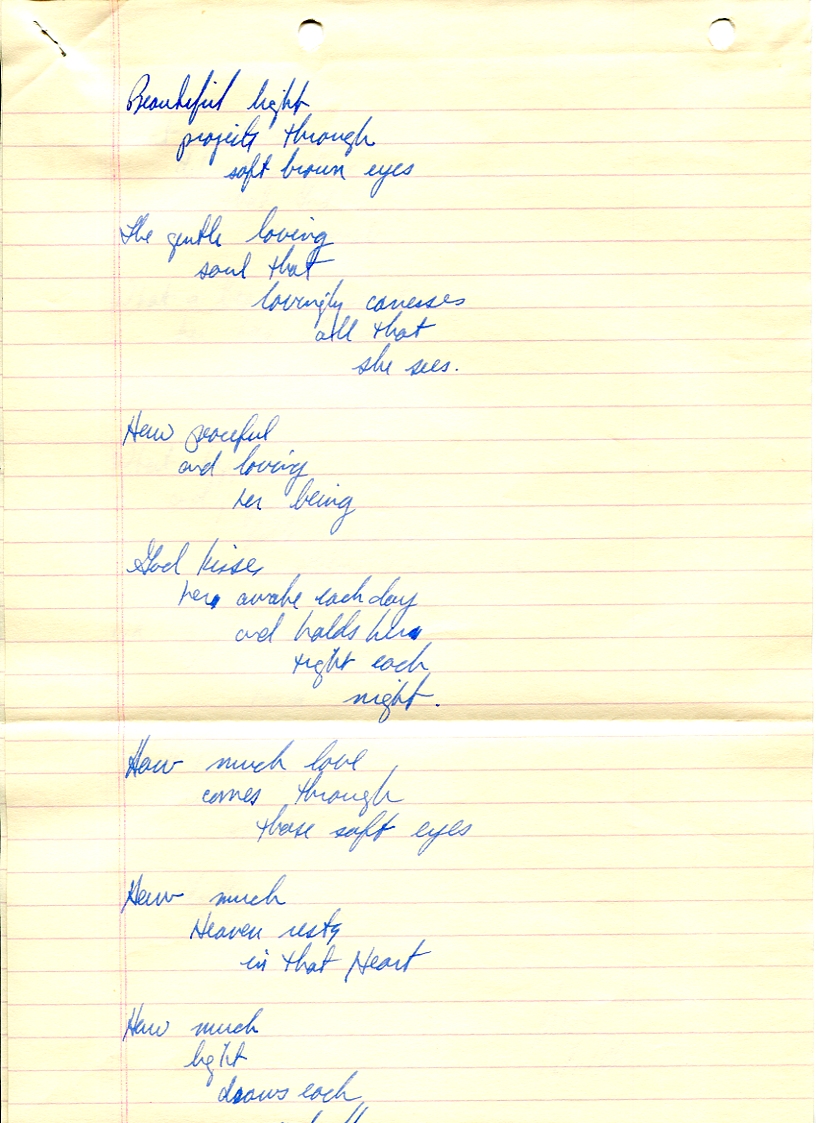 Beautiful light
projects through
soft brown eyes
The gentle loving
soul that
lovingly caresses
all that
she sees.
How peaceful
and loving
her being
God kisses
her awake each day
and holds her
tight each
night.
How much love
comes through
those soft eyes
How much
Heaven rests
in that Heart
How much
light
draws each